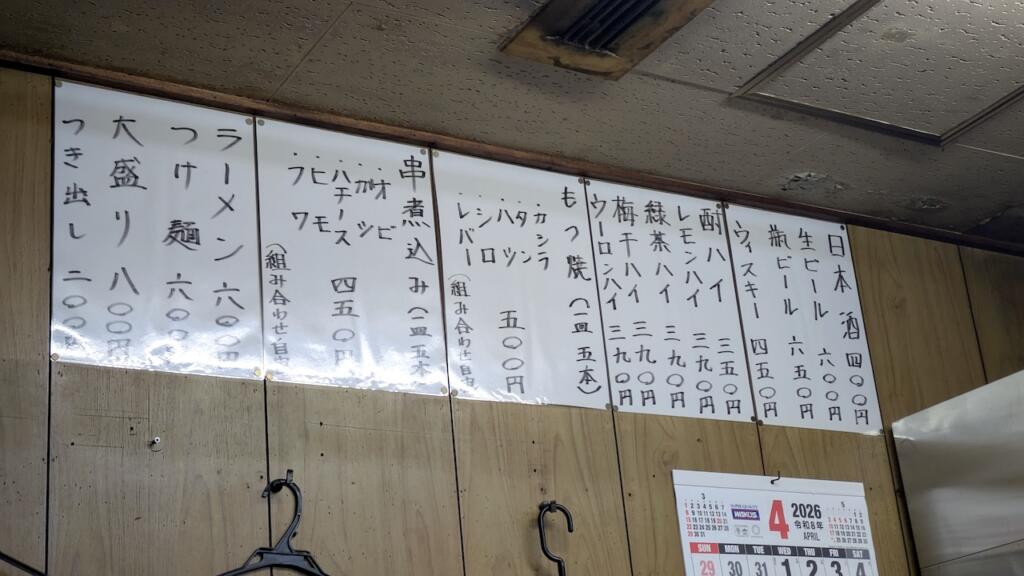 日本酒 四〇〇円
生ビール 六〇〇円
瓶ビール 六五〇円
ウィスキー 四五〇円
酎ハイ 三五〇円
レモンハイ 三九〇円
緑茶ハイ 三九〇円
梅干ハイ 三九〇円
ウーロンハイ 三九〇円
もつ焼(一皿 五本)
・カシラ
・タン
・ハツ 五〇〇円
・シロ
・レバー
(組み合わせ自由
串煮込み(一皿五本
・ハチノス 四五〇円
・ヒモ
・フワ
(組み合わせ自由
ラーメン 六〇〇円
つけ麺 六〇〇円
大盛り 八〇〇円
つき出し 二〇〇円
3
4
2026
令和8年
APRIL
5
SUN MON TUE WED THU FRI SAT
29 30 31 1 2 3 4